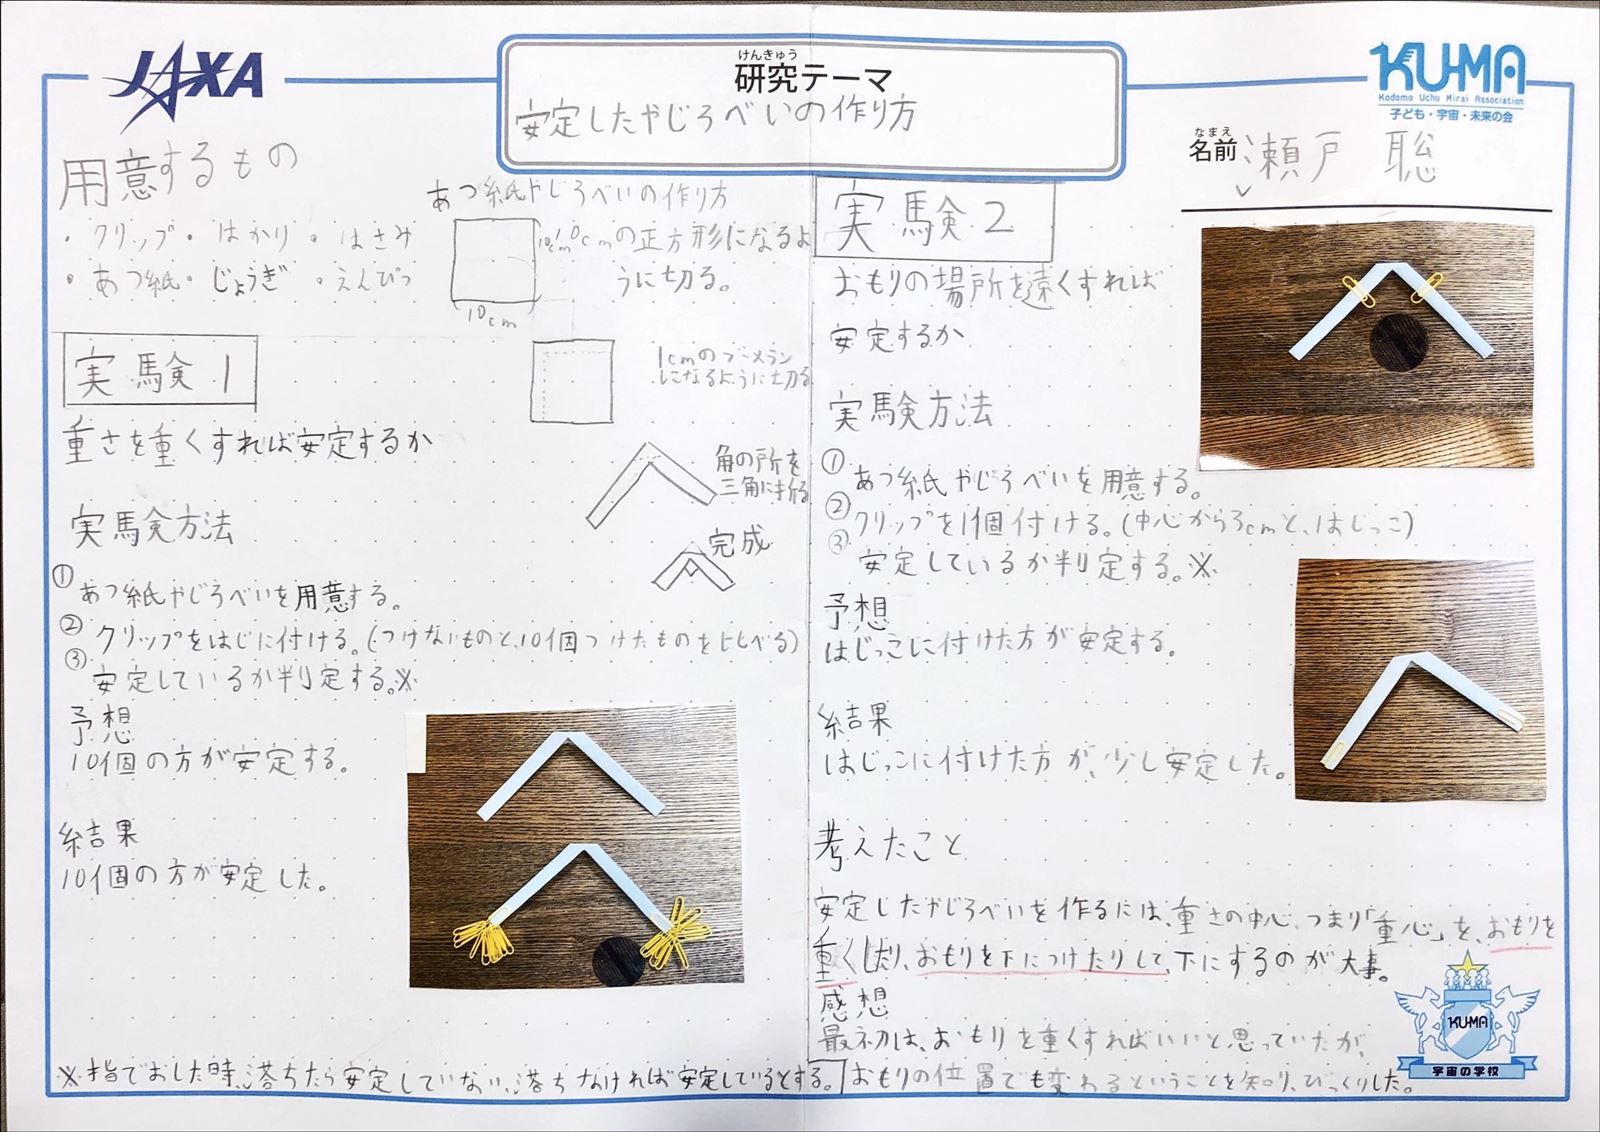 JAXA
けんきゅう
研究テーマ
安定したやじろべいの作り方
KU-MA
Kodomo Uchu Mirai Association
子ども・宇宙・未来の会
なまえ
名前 瀬戸 聡
用意するもの
・クリップ・はかり・はさみ
・あつ紙・じょうぎ・えんぴつ
あつ紙やじろべいの作り方
10cm
10cmの正方形になるよ
うに切る。
10cm
1cmのブーメラン
になるように切る
角の所を
三角に折る
完成
実験1
重さを重くすれば安定するか
実験方法
①あつ紙やじろべいを用意する。
②クリップをはじに付ける。(つけないものと、10個つけたものを比べる)
③安定しているか判定する。※
予想
10個の方が安定する。
結果
10個の方が安定した。
※指でおした時、落ちたら安定していない、落ちなければ安定しているとする。
実験2
おもりの場所を遠くすれば
安定するか
実験方法
①あつ紙やじろべいを用意する。
②クリップを1個付ける。(中心から3cmと、はじっこ)
③安定しているか判定する。※
予想
はじっこに付けた方が安定する。
結果
はじっこに付けた方が、少し安定した。
考えたこと
安定したやじろべいを作るには、重さの中心、つまり「重心」を、おもりを
重くしたり、おもりを下につけたりして、下にするのが大事。
感想
最初は、おもりを重くすればいいと思っていたが、
おもりの位置でも変わるということを知り、びっくりした。
KU-MA
宇宙の学校